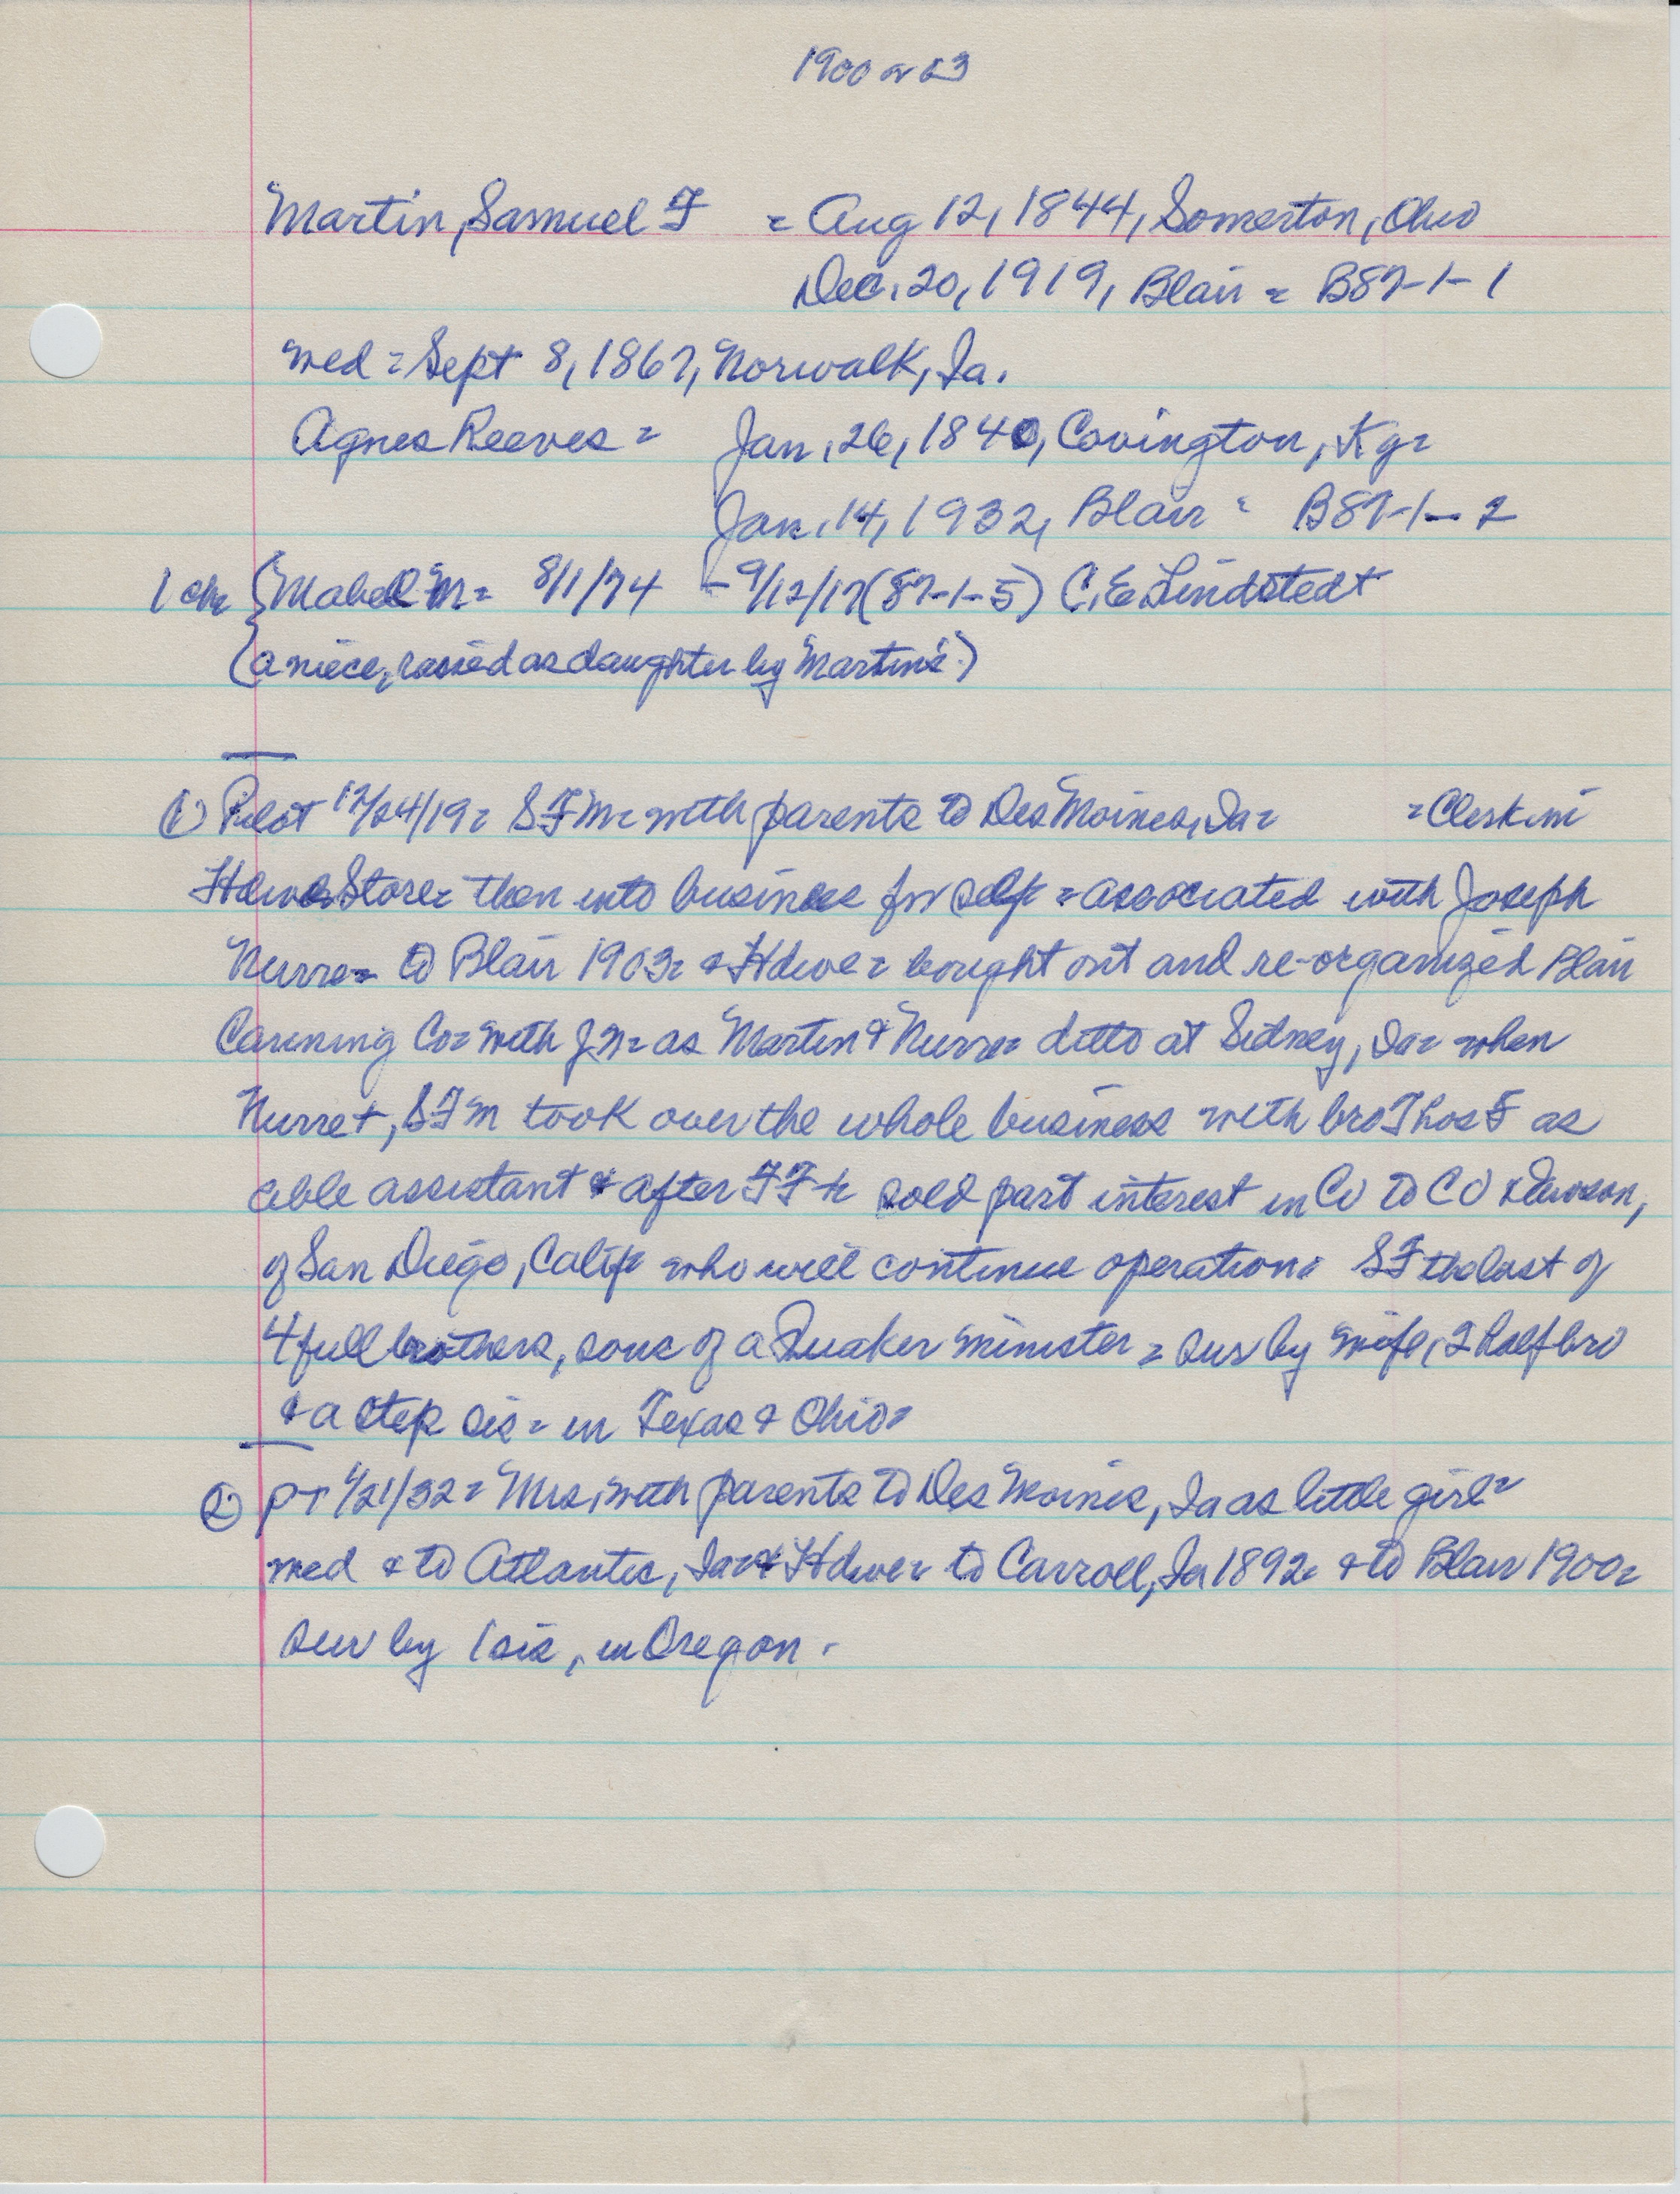 1900 or 03
Martin, Samuel F = Aug 12, 1844, Somerton, Ohio
Dec. 20, 1919, Blair = B87-1-1
med = Sept 8, 1867, Norwalk, Ia.
Agnes Reeves = Jan. 26, 1840, Covington, Ky =
Jan. 14, 1932, Blair = B87-1-2
1 ch { Mabel M = 8/1/74 - 9/12/17 (87-1-5) C.E Lindstedt
(a niece, raised as daughter by Martins.)
(1) Pilot 12/24/19 = SFM = with parents to Des Moines, Ia = = Clerk in
Hdwe Store = then into business for self = associated with Joseph
Nurre = to Blair 1903 = & Hdwe = bought out and re-organized Blair
Canning Co = with JN = as Martin & Nurre = ditto at Sidney, Ia = when
Nurre +, SFM took over the whole business with bro Thos F as
able assistant & after TF + sold part interest in Co to CO Dawson,
of San Diego, Calif = who will continue operation = SF the last of
4 full brothers, sons of a Quaker minister = sur by wife, 2 half bro
& a step sis = in Texas & Ohio =
(2) PT 1/21/32 = Mrs, with parents to Des Moines, Ia as little girl =
med & to Atlantic, Ia = & Hdwe = to Carroll, Ia 1892 = & to Blair 1900 =
sur by 1 sis, in Oregon.